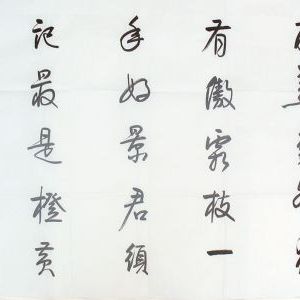 有傲霜枝一
年好景君須
記最是橙黃